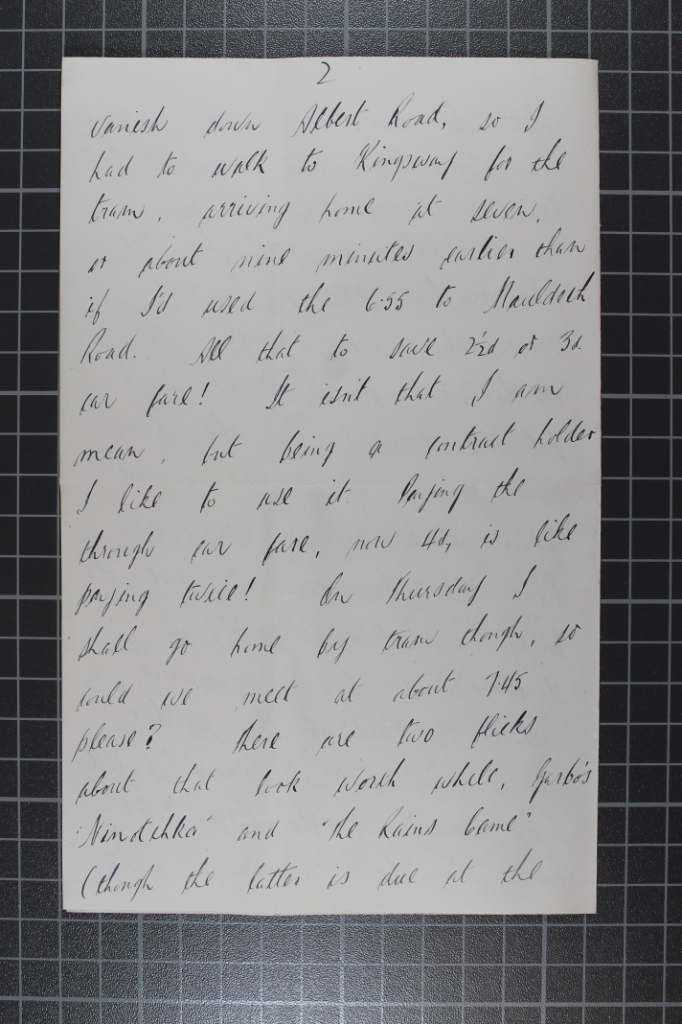 2
vanish down Albert Road, so I
had to walk to Kingsway for the
tram, arriving home at seven,
or about nine minutes earlier than
if I'd used the 6.55 to Mauldeth
Road. All that to save 2½d or 3d.
car fare! It isn't that I am
mean, but being a contract holder
I like to use it. Paying the
through car fare, now 4d, is like
paying twice! On Thursday I
shall go home by tram though, so
could we meet at about 7.45
please? There are two flicks
about that look worth while, Garbo's
'Ninotchka' and "The Rains Came"
(though the latter is due at the